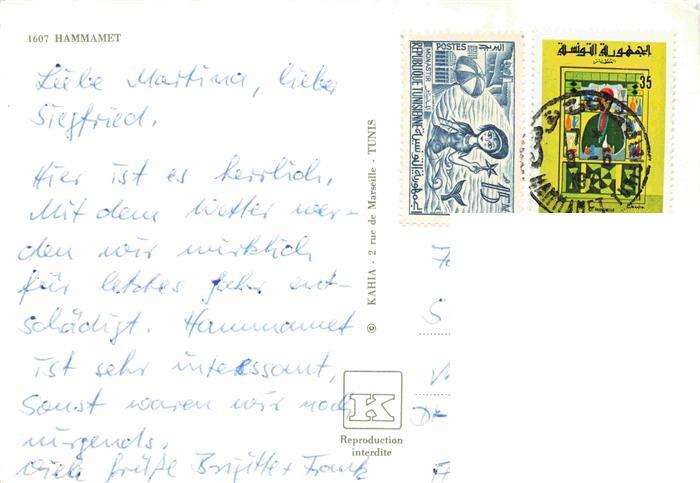 1607 HAMMAMET
Liebe Martina, lieber
Siegfried.
Hier ist es herrlich,
Mit dem Wetter wer-
den wir wirklich
für letztes Jahr ent-
schädigt. Hammamet
ist sehr interessant,
Sonst waren wir noch
nirgends.
Viele Grüße Brigitte + Frank
© KAHIA - 2 rue de Marseille - TUNIS
K
Reproduction
interdite
POSTES البريد
MONASTIR
REPUBLIQUE TUNISIENNE
الجمهورية التونسية
15M
الجمهورية التونسية
35
HAMMAMET
S